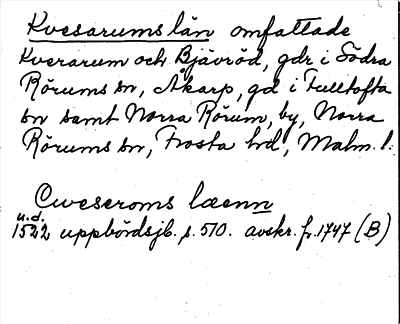 Kvesarums län omfattade
Kvesarum och Bjävröd, gdr i Södra
Rörums sn, Åkarp, gd i Fulltofta
sn samt Norra Rörum, by, Norra
Rörums sn, Frosta hd, Malm. l.
Cweseroms læenn
u.d.
1522 uppbördsjb. s. 510. avskr. fr. 1747 (B)